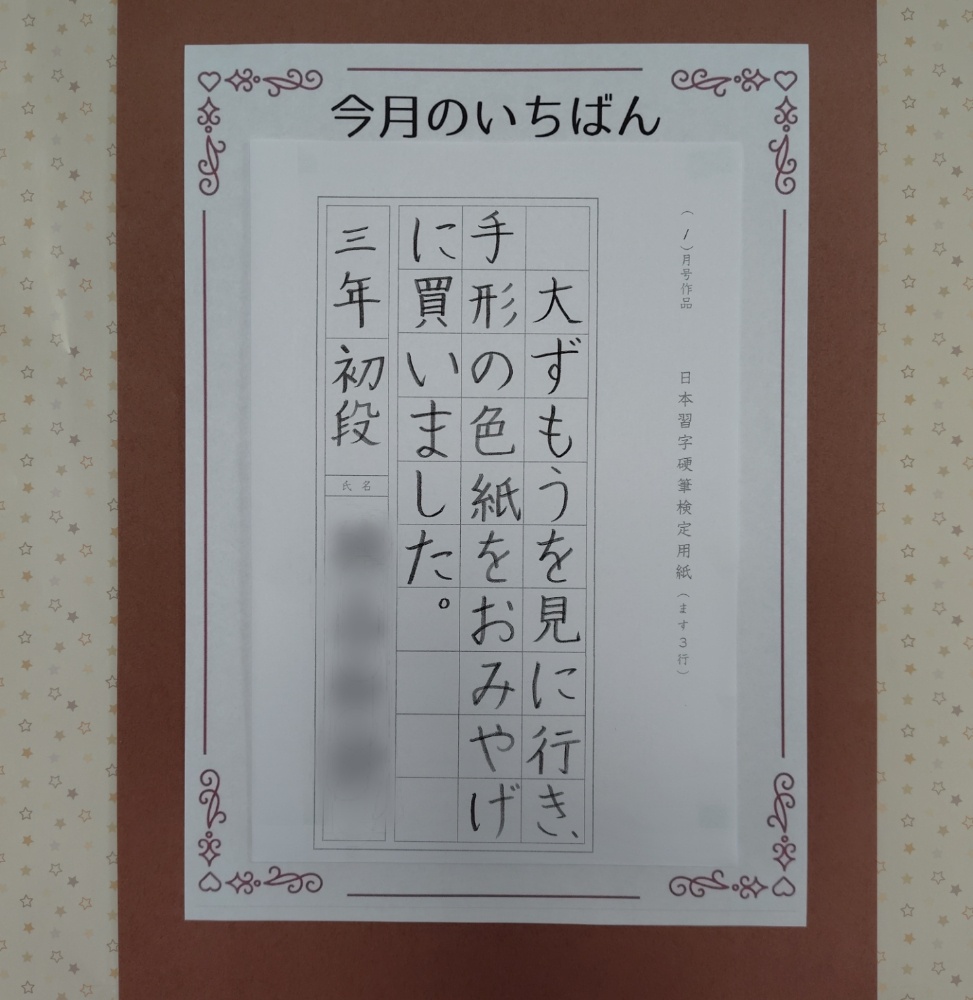 今月のいちばん
（1）月号作品　日本習字硬筆検定用紙（ます3行）
大ずもうを見に行き、
手形の色紙をおみやげ
に買いました。
三年 初段
氏名